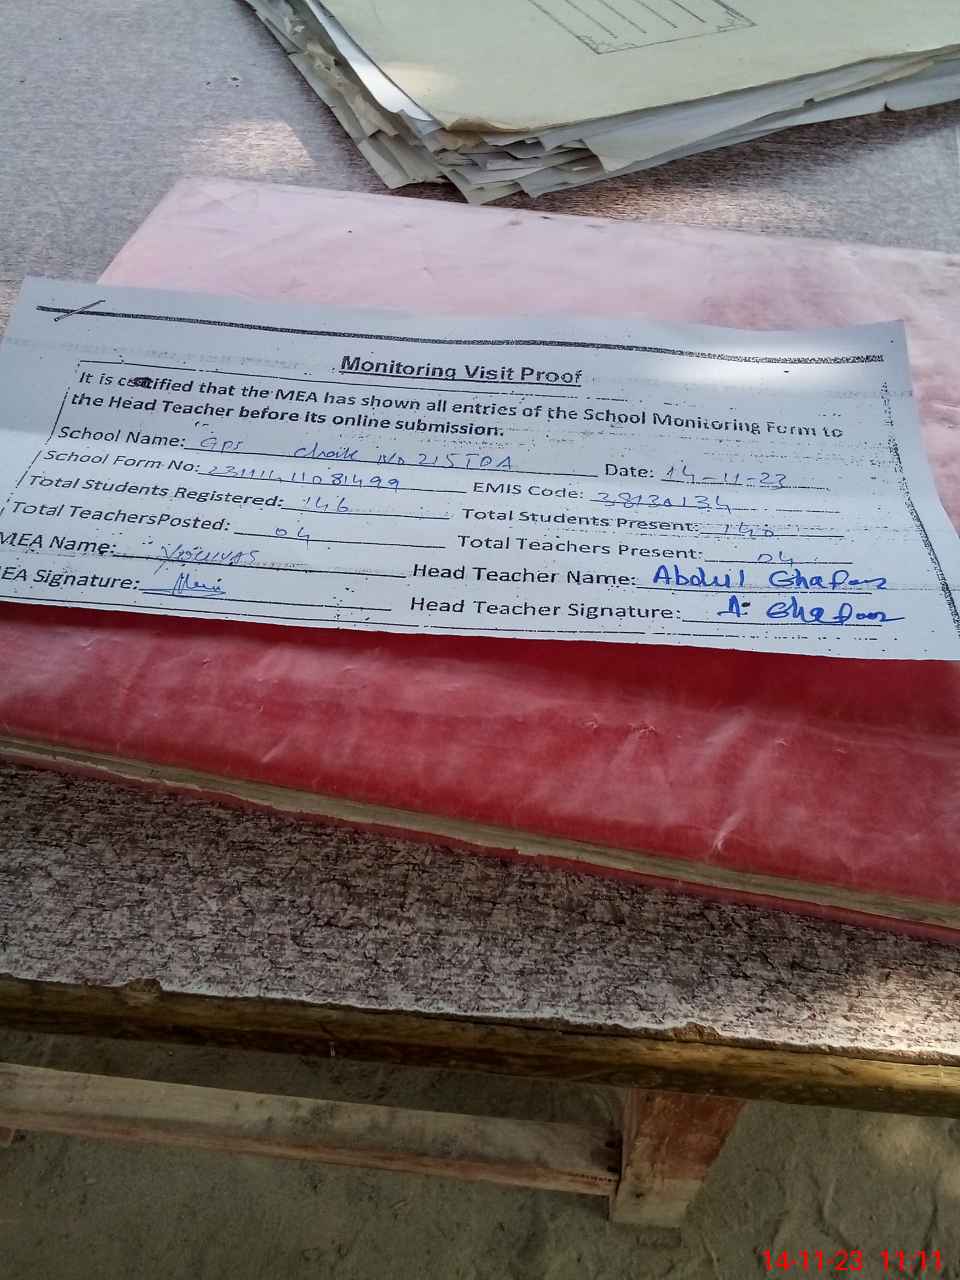 Monitoring Visit Proof
It is certified that the MEA has shown all entries of the School Monitoring Form to
the Head Teacher before its online submission.
School Name: Gps Chak No 215 TDA Date: 14-11-23
School Form No: EMIS Code: 38130134
Total Students Registered: 146 Total Students Present: 140
Total TeachersPosted: 04 Total Teachers Present: 04
MEA Name: Younas Head Teacher Name: Abdul Ghafoor
MEA Signature: Head Teacher Signature: A. Ghafoor
14-11-23 11:11